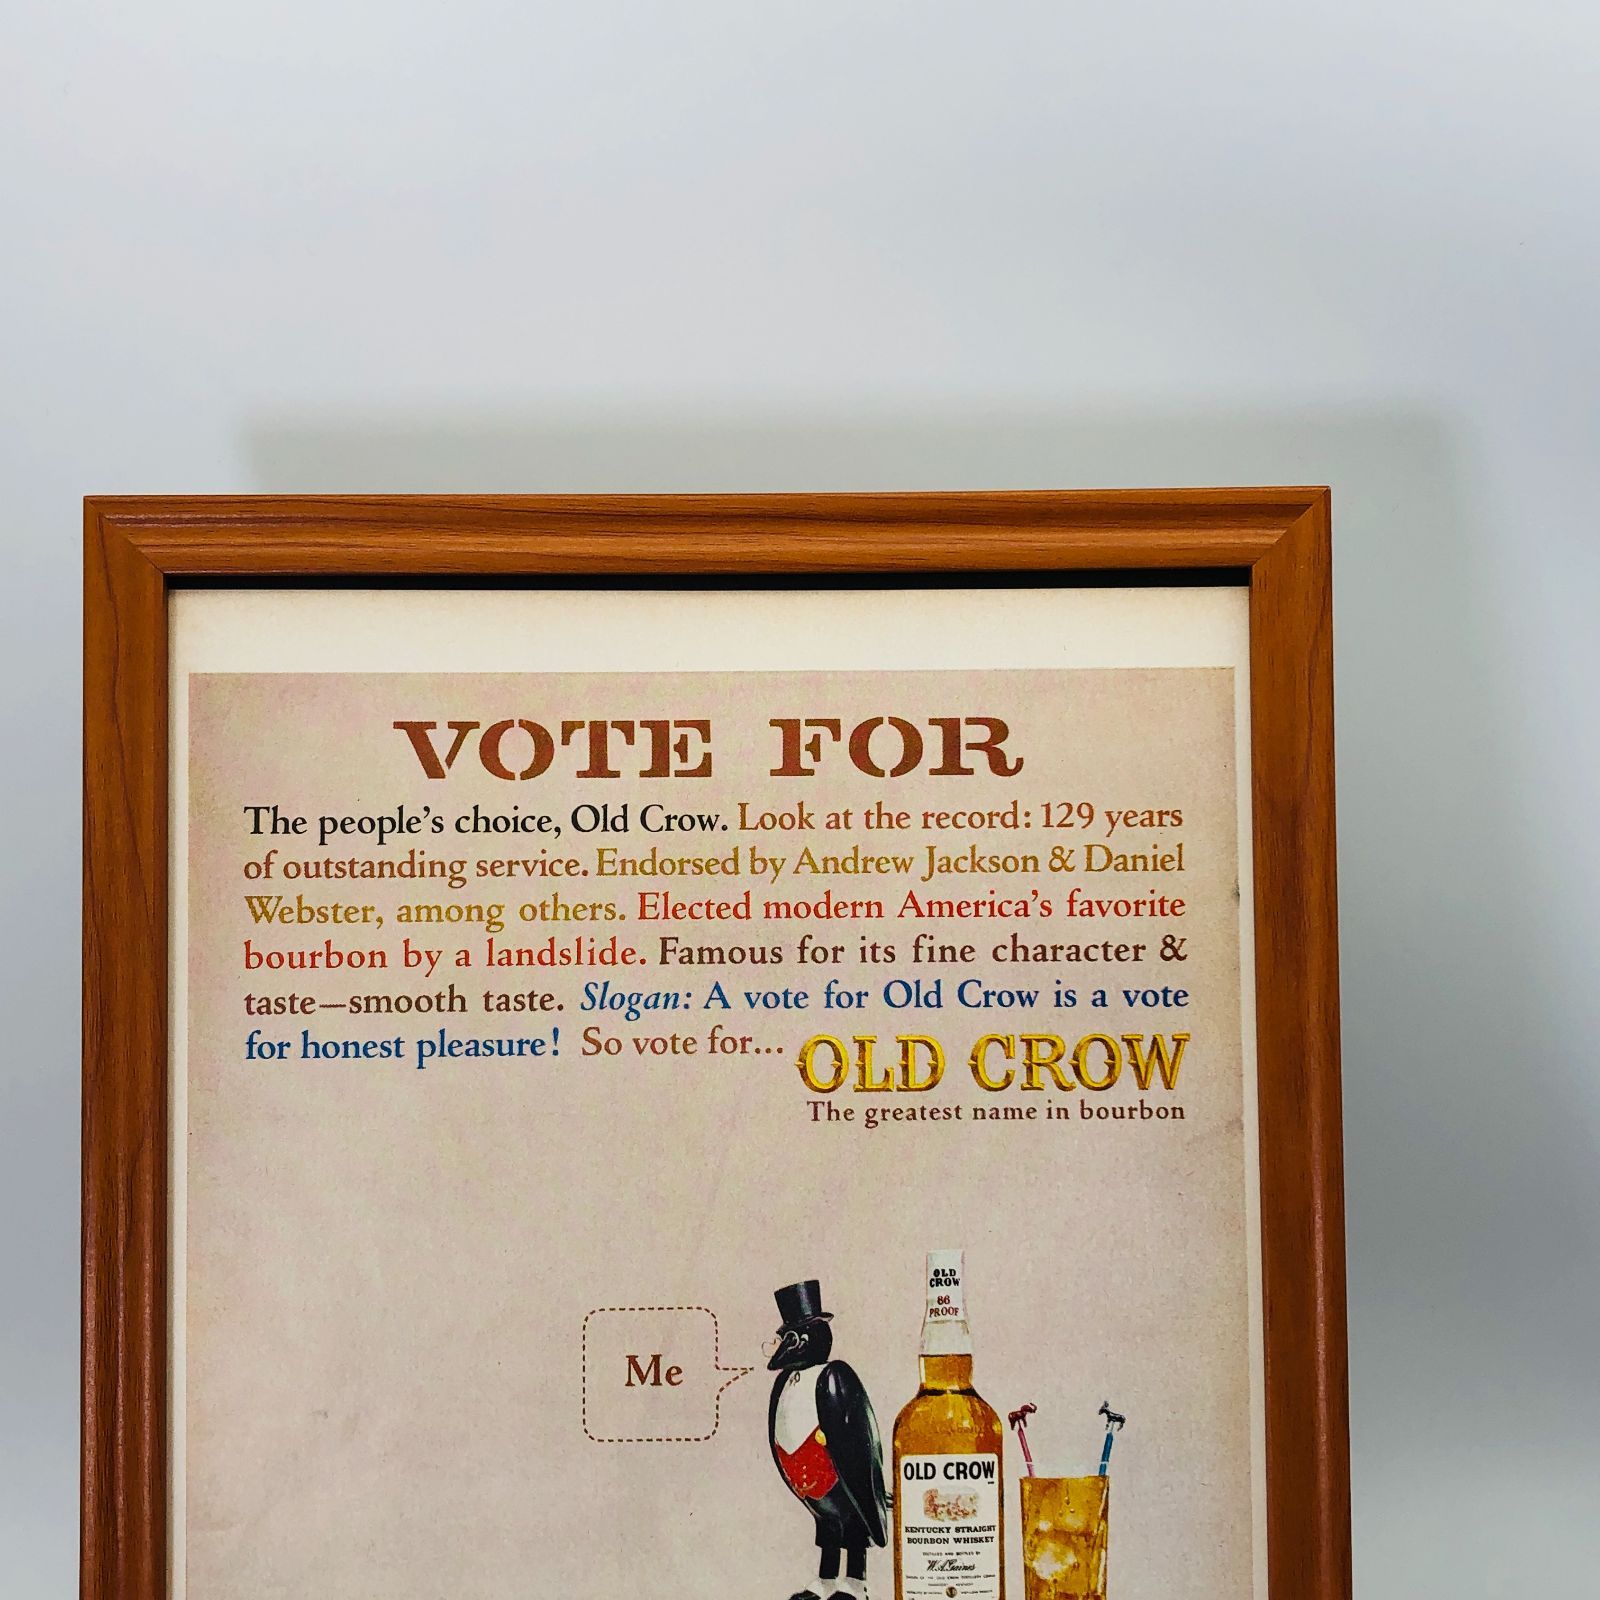 VOTE FOR
The people's choice, Old Crow. Look at the record: 129 years
of outstanding service. Endorsed by Andrew Jackson & Daniel
Webster, among others. Elected modern America's favorite
bourbon by a landslide. Famous for its fine character &
taste—smooth taste. Slogan: A vote for Old Crow is a vote
for honest pleasure! So vote for... OLD CROW
The greatest name in bourbon
Me
OLD
CROW
86
PROOF
OLD CROW
KENTUCKY STRAIGHT
BOURBON WHISKEY
DISTILLED AND BOTTLED BY
W.A.Gaines